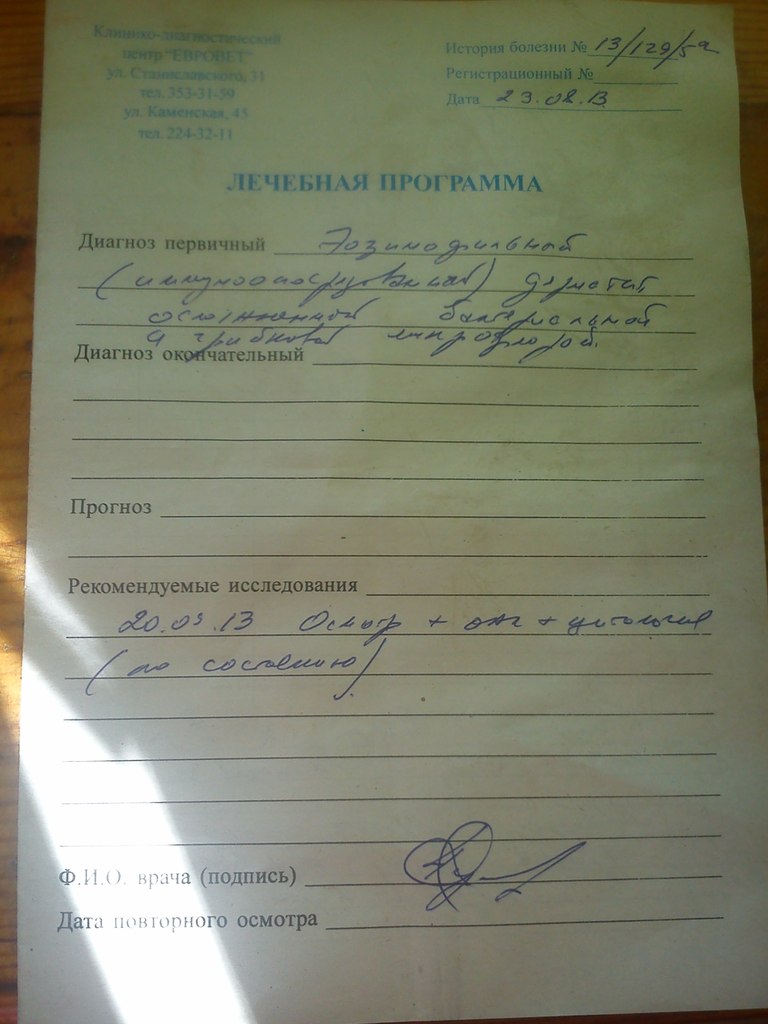 Клинико-диагностический
центр "ЕВРОВЕТ"
ул. Станиславского, 31
тел. 353-31-59
ул. Каменская, 45
тел. 224-32-11
История болезни № 13/129/5а
Регистрационный №
Дата 23.08.13
ЛЕЧЕБНАЯ ПРОГРАММА
Диагноз первичный Эозинофильный
(иммуноопосредованный) дерматит,
осложненный бактериальной
и грибковой микрофлорой.
Диагноз окончательный
Прогноз
Рекомендуемые исследования
20.09.13 Осмотр + оак + цитология
(по состоянию).
Ф.И.О. врача (подпись)
Дата повторного осмотра